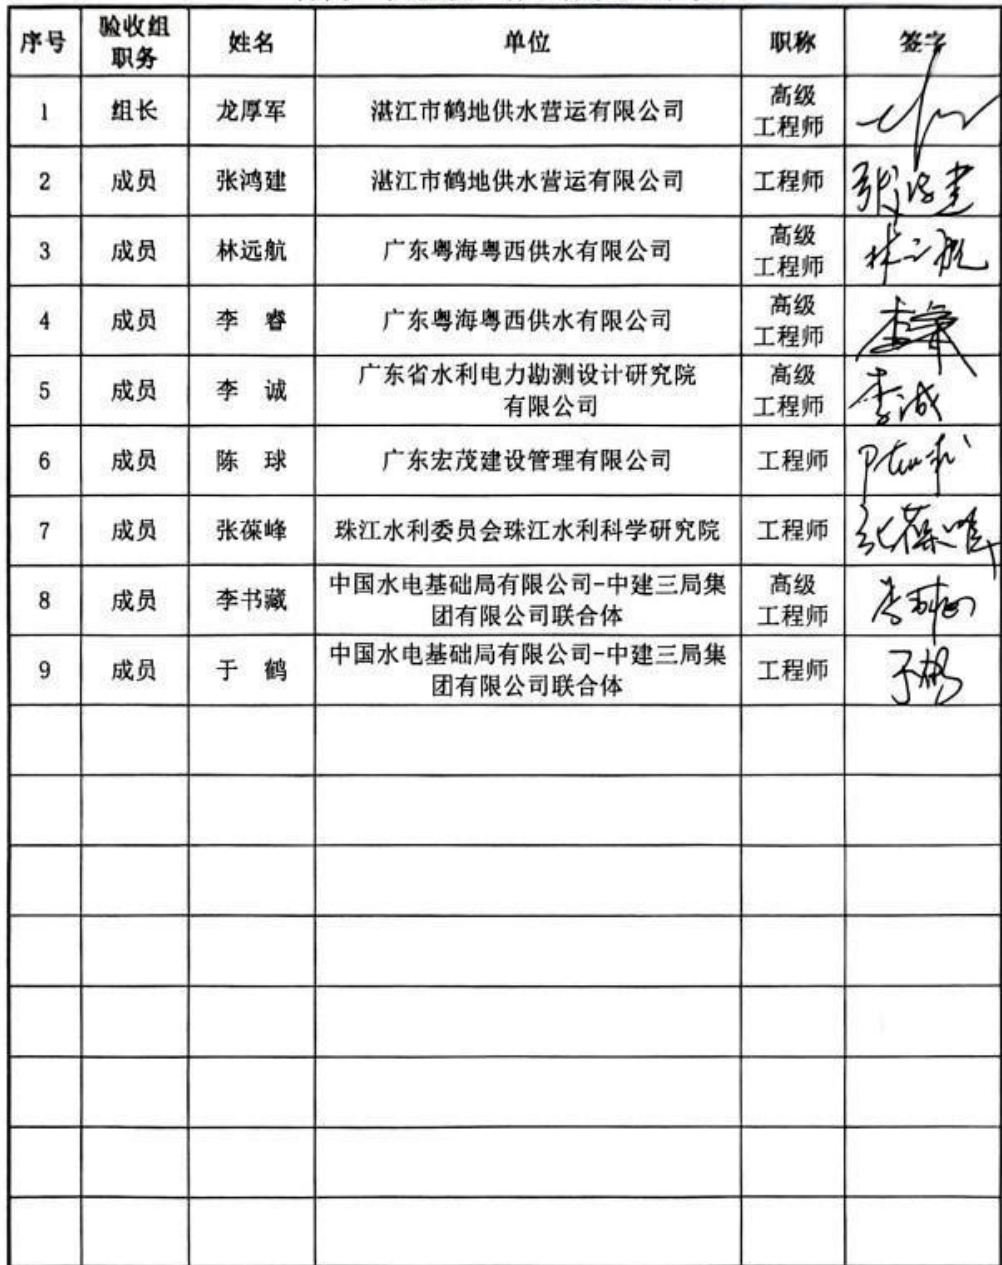 序号 验收组职务 姓名 单位 职称 签字
1 组长 龙厚军 湛江市鹤地供水营运有限公司 高级工程师
2 成员 张鸿建 湛江市鹤地供水营运有限公司 工程师 张鸿建
3 成员 林远航 广东粤海粤西供水有限公司 高级工程师 林远航
4 成员 李睿 广东粤海粤西供水有限公司 高级工程师 李睿
5 成员 李诚 广东省水利电力勘测设计研究院有限公司 高级工程师 李诚
6 成员 陈球 广东宏茂建设管理有限公司 工程师 陈球
7 成员 张葆峰 珠江水利委员会珠江水利科学研究院 工程师 张葆峰
8 成员 李书藏 中国水电基础局有限公司-中建三局集团有限公司联合体 高级工程师
9 成员 于鹤 中国水电基础局有限公司-中建三局集团有限公司联合体 工程师 于鹤